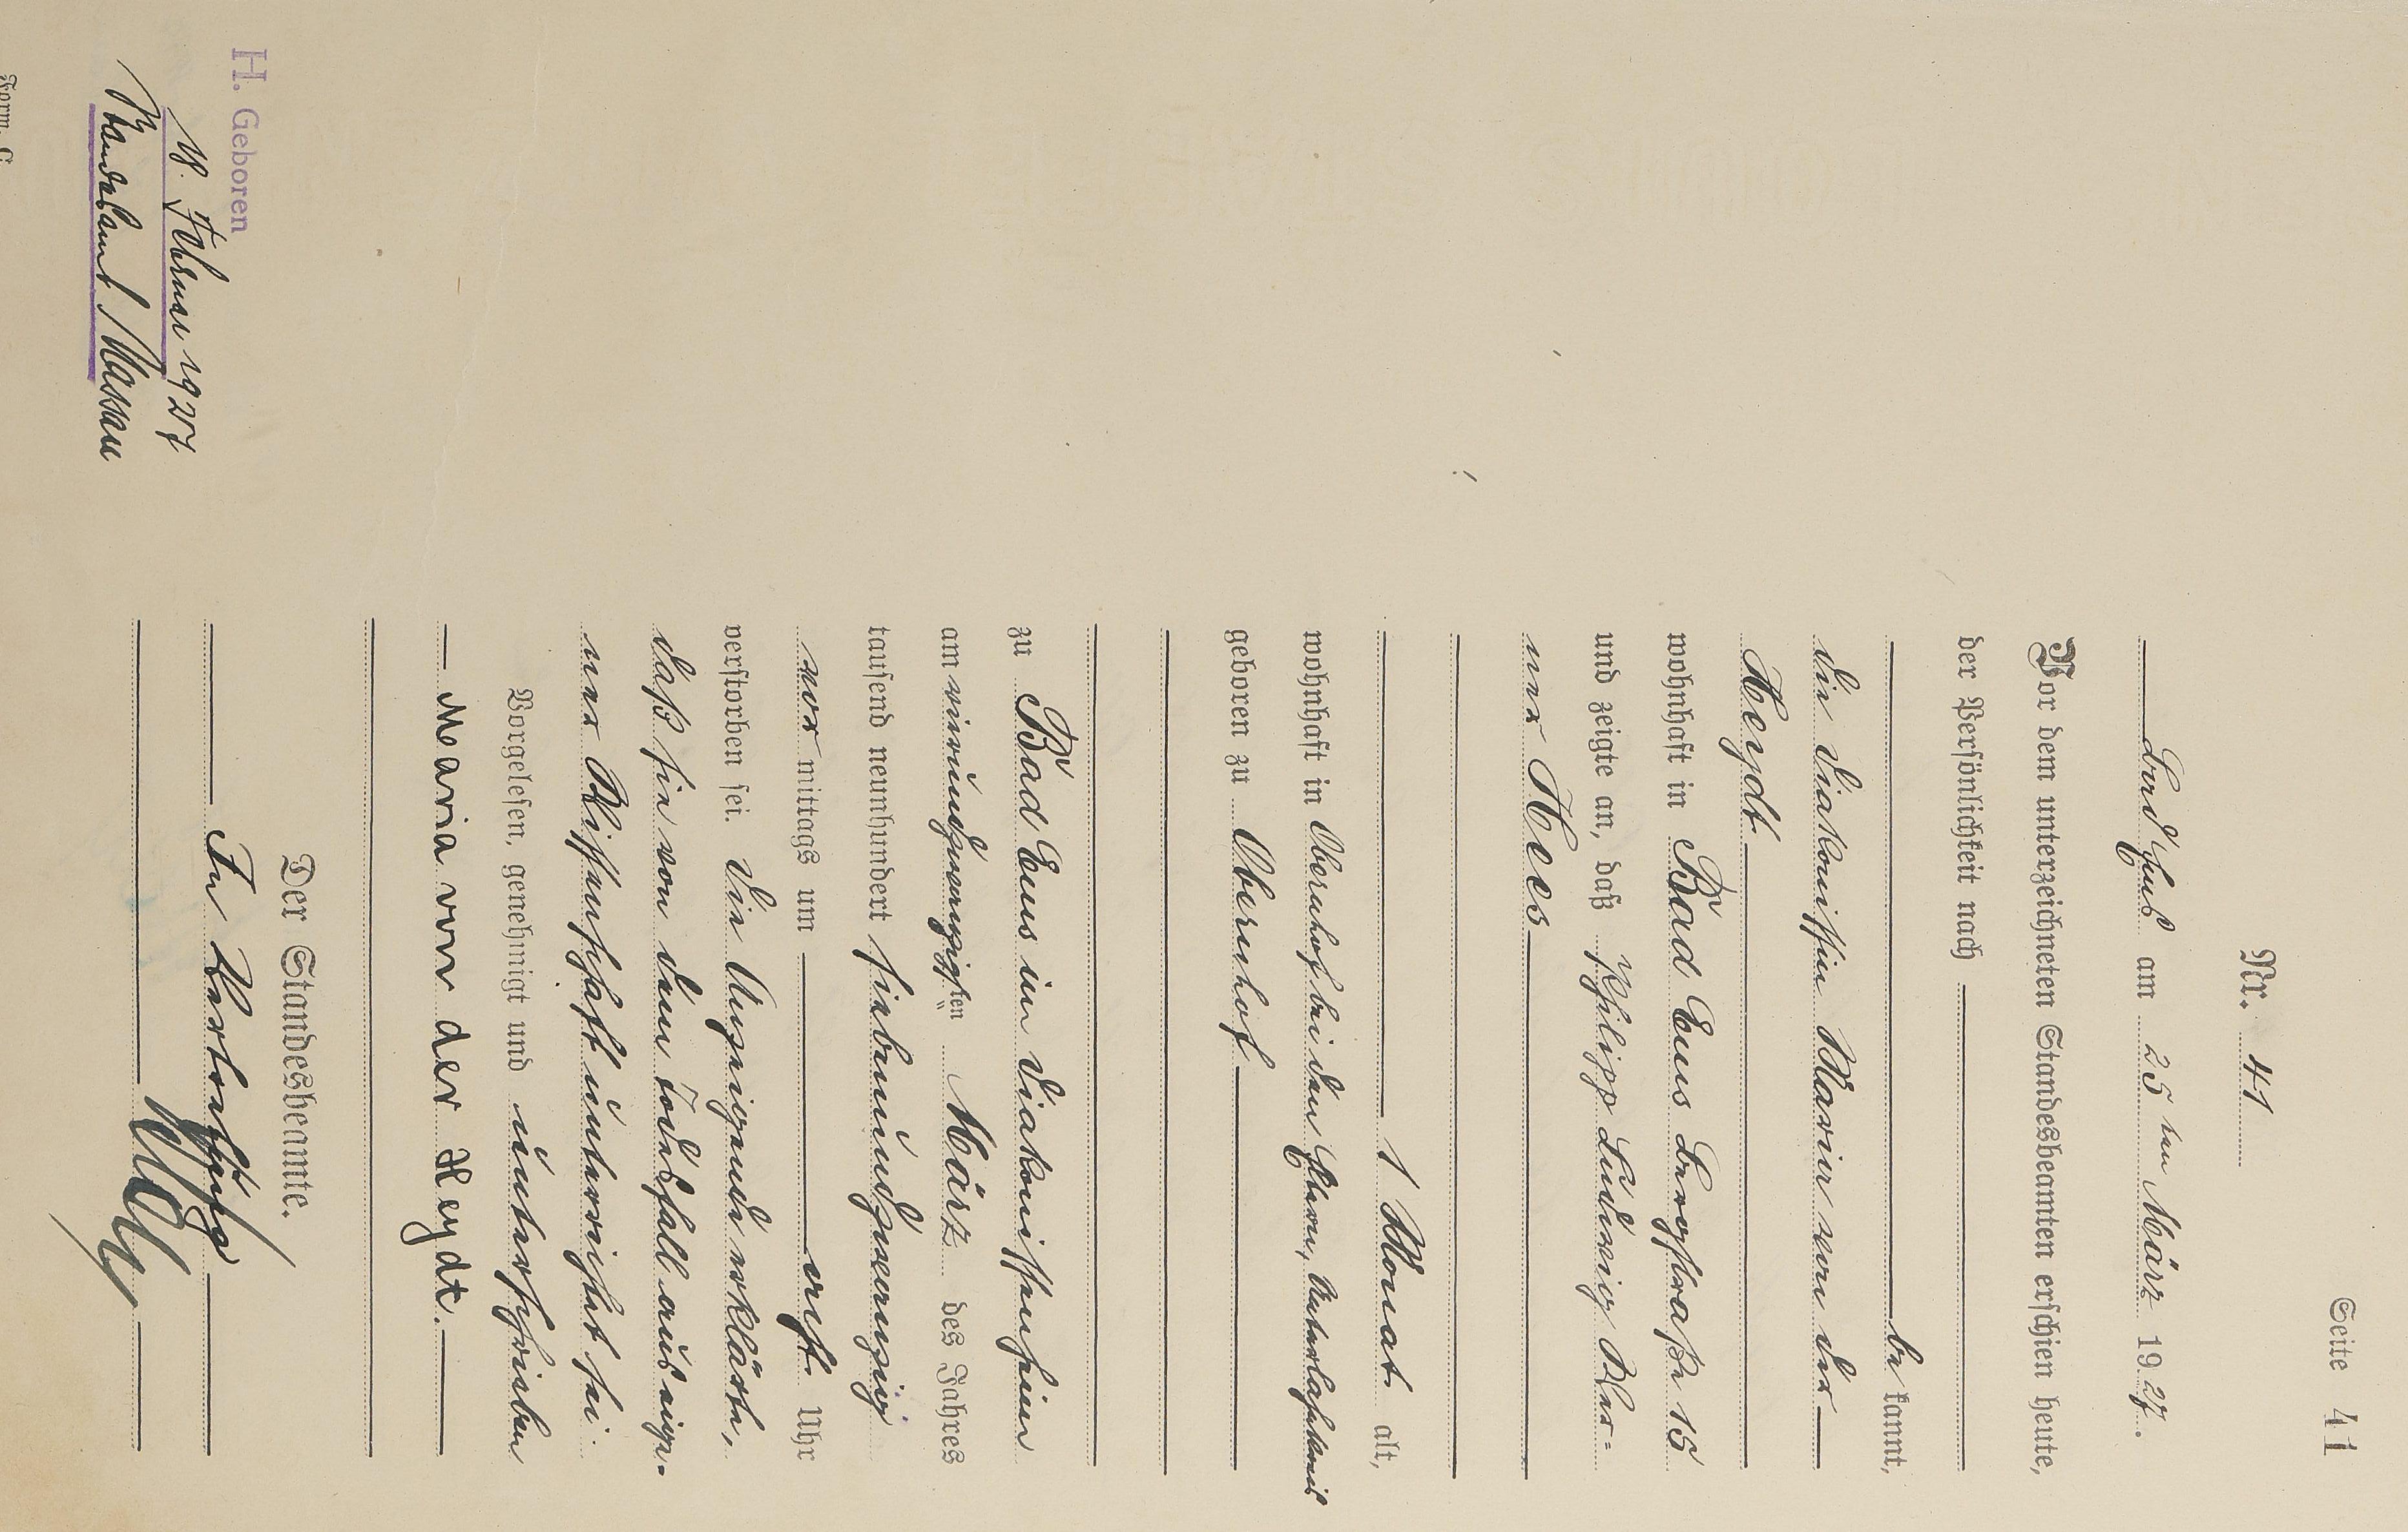 Seite 41
Nr. 41
Bad Ems am 25ten März 1927.
Vor dem unterzeichneten Standesbeamten erschien heute,
der Persönlichkeit nach
be kannt,
die Diakonissin Marie von der
Heydt
wohnhaft in Bad Ems Bergstraße 15
und zeigte an, daß Philipp Ludwig Wer=
ner Hees
1 Monat alt,
wohnhaft in Obernhof bei den Eltern, Unterlahnkreis
geboren zu Obernhof
zu Bad Ems im Diakonissenheim
am vierundzwanzigsten März des Jahres
tausend neunhundert siebenundzwanzig
vor mittags um acht Uhr
verstorben sei. Die Anzeigende erklärte,
daß sie von dem Todesfall aus eige-
ner Wissenschaft unterrichtet sei.
Vorgelesen, genehmigt und unterschrieben
Maria von der Heydt.
Der Standesbeamte.
In Vertretung
H. Geboren
Februar 1927
Standesamt Nassau
Form. C